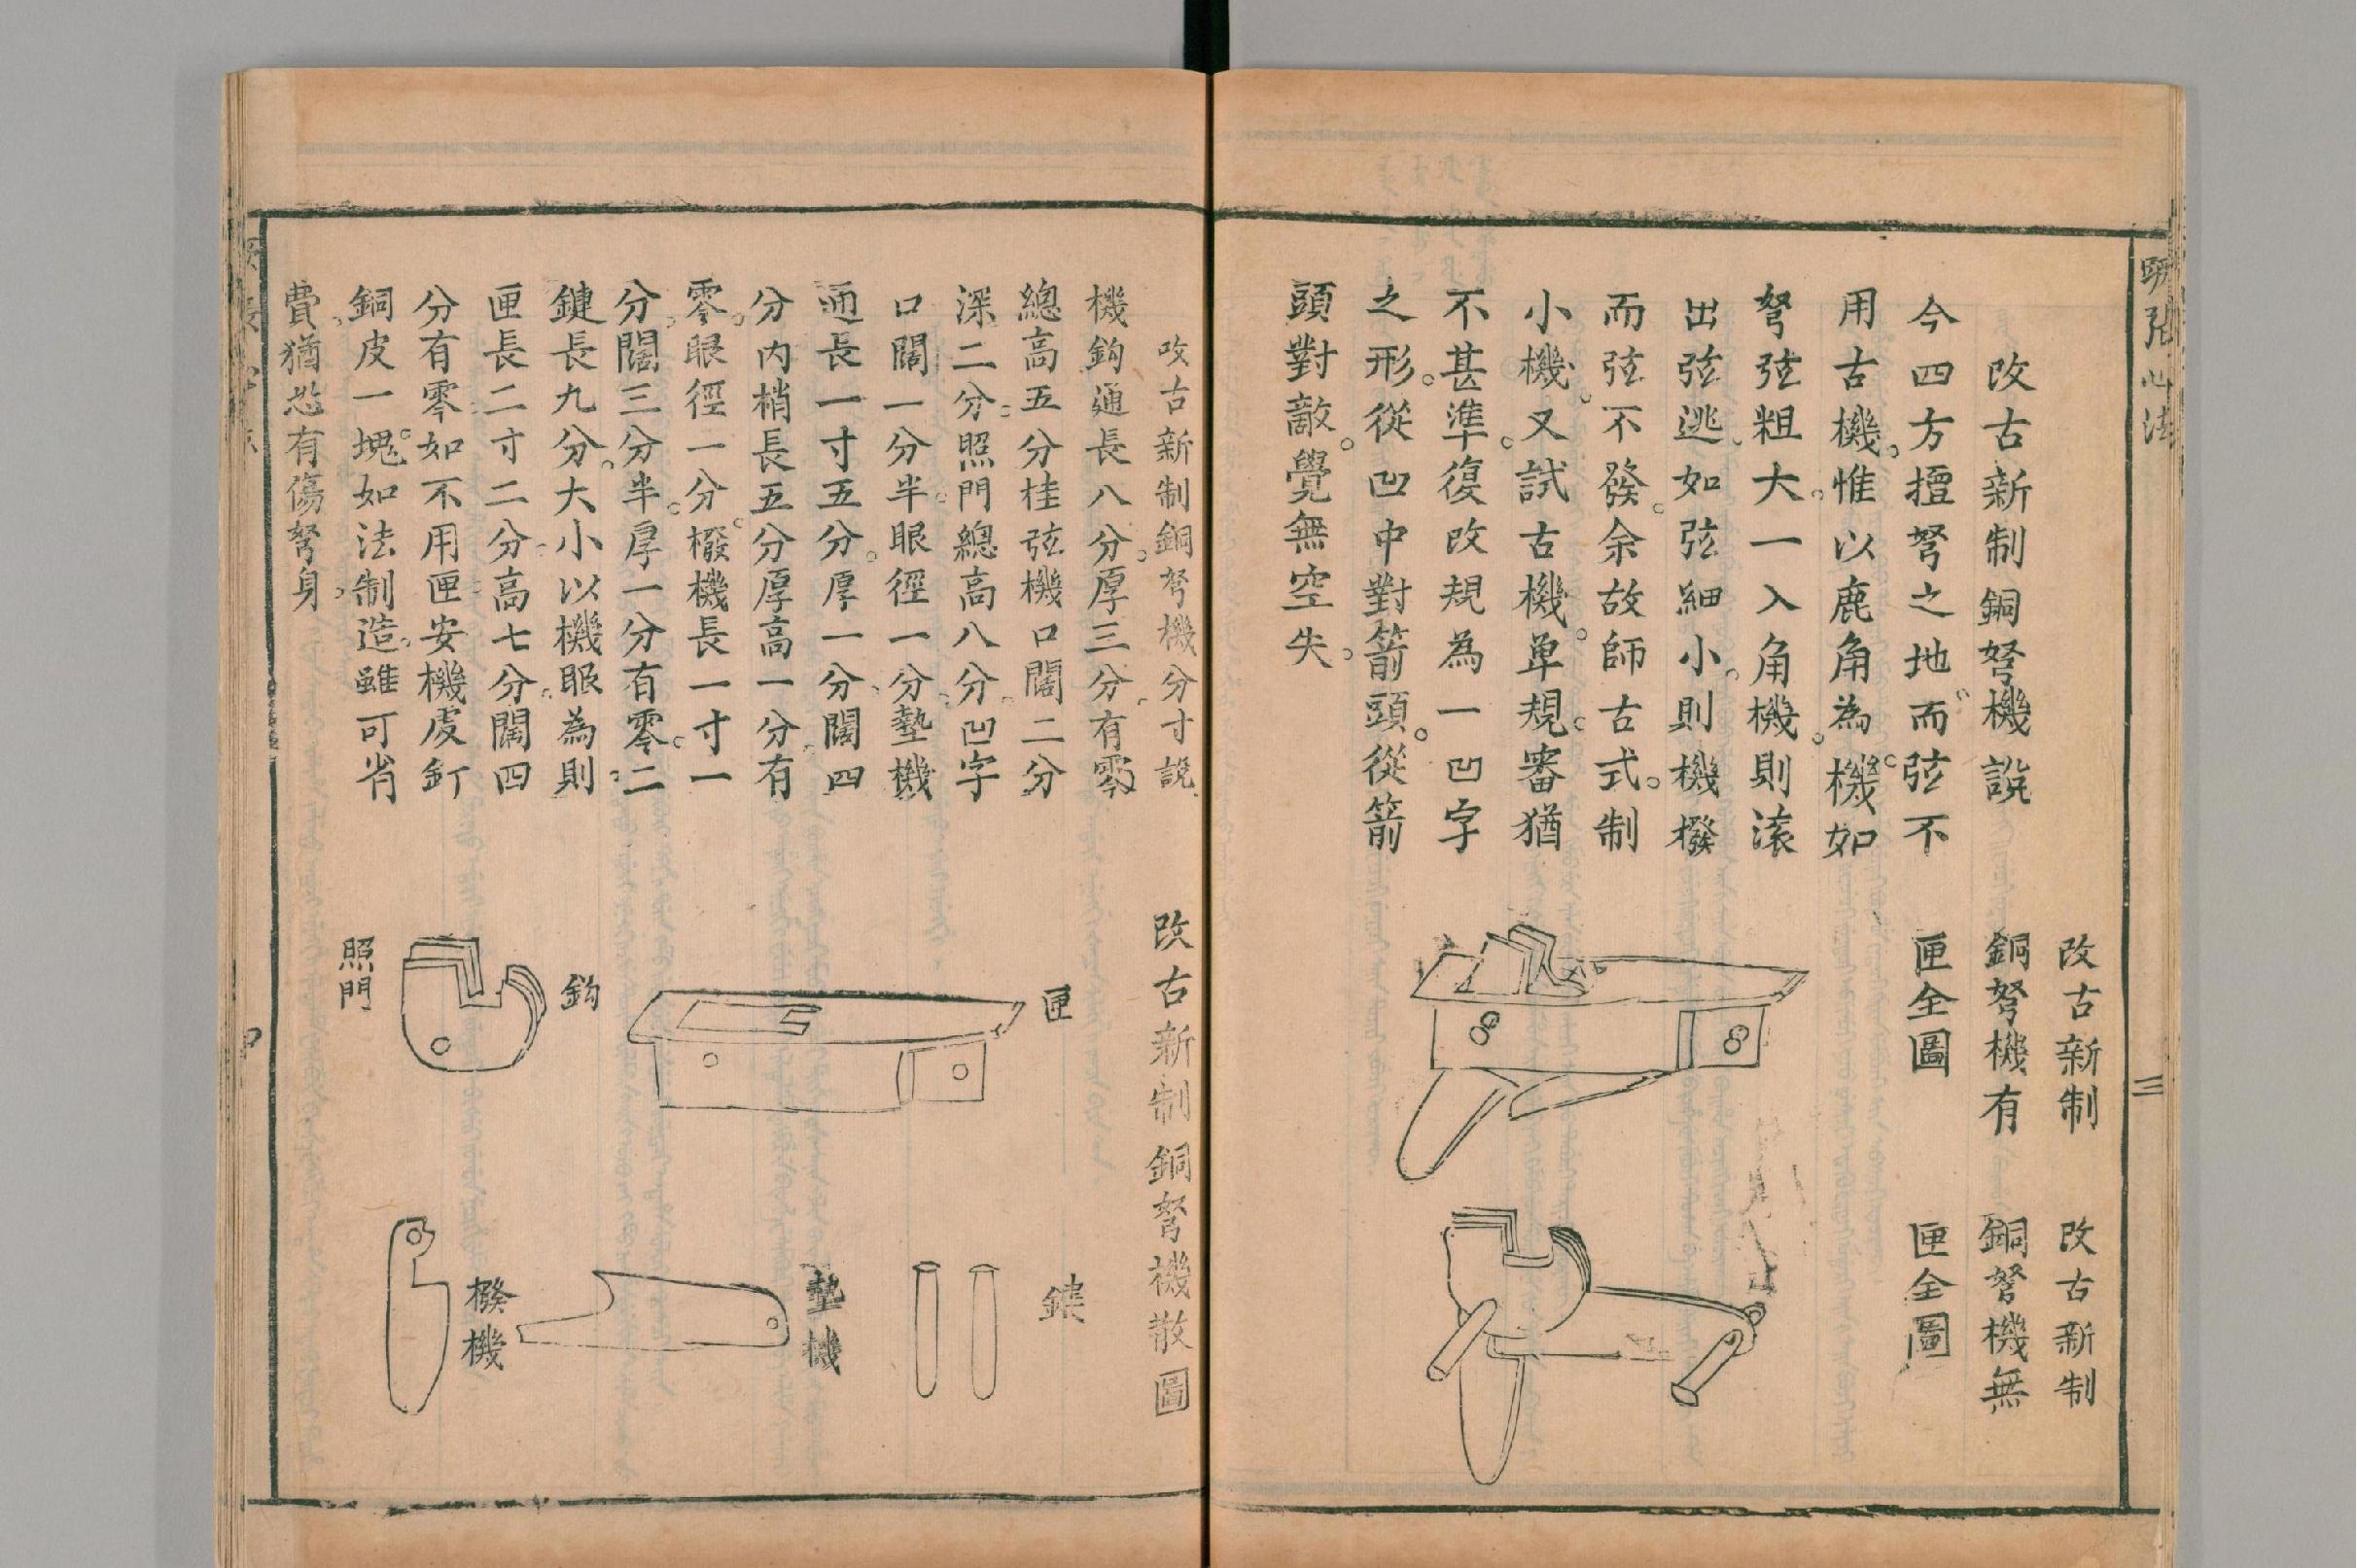 蹶張心法
三
改古新制銅弩機說
今四方擅弩之地而弦不
用古機。惟以鹿角為機。如
弩弦粗大。一入角機。則滚
出弦逃。如弦細小。則機撥
而弦不發。余故師古式。制
小機。又試古機。单規。審猶
不甚準。復改規為一凹字
之形。從凹中對箭頭。從箭
頭對敵。覺無空失。
改古新制
銅弩機有
匣全圖
改古新制
銅弩機無
匣全圖
改古新制銅弩機分寸說
機鈎通長八分。厚三分有零
總高五分。桂弦機口闊二分
深二分。照門總高八分。凹字
口闊一分半。眼徑一分。墊機
通長一寸五分。厚一分。闊四
分。内梢長五分。厚高一分有
零。眼徑一分。橃機長一寸一
分。闊三分半。厚一分有零。二
鍵長九分。大小以機眼為則
匣長二寸二分。高七分。闊四
分有零。如不用匣。安機處釘
銅皮一塊。如法制造。雖可省
費。猶恐有傷弩身。
改古新制銅弩機散圖
匣
鈎
照門
鍵
墊機
橃機